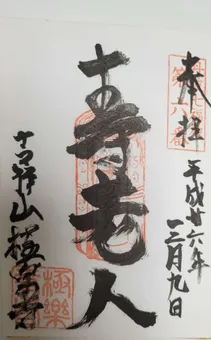 奉拝
平成廿六年
一二月九日
寿老人
吉祥山極楽寺
極楽